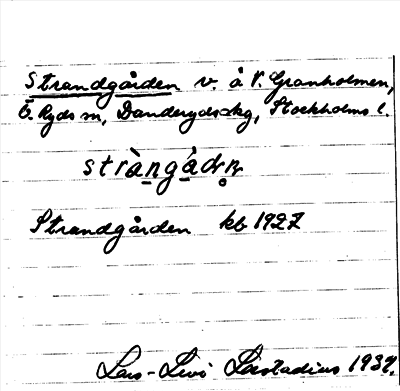 Strandgården v. å V. Granholmen,
Ö. Ryds sn, Danderyds skg, Stockholms l.
stràngádṇ
Strandgården kb 1927
Lars-Levi Læstadius 1937.